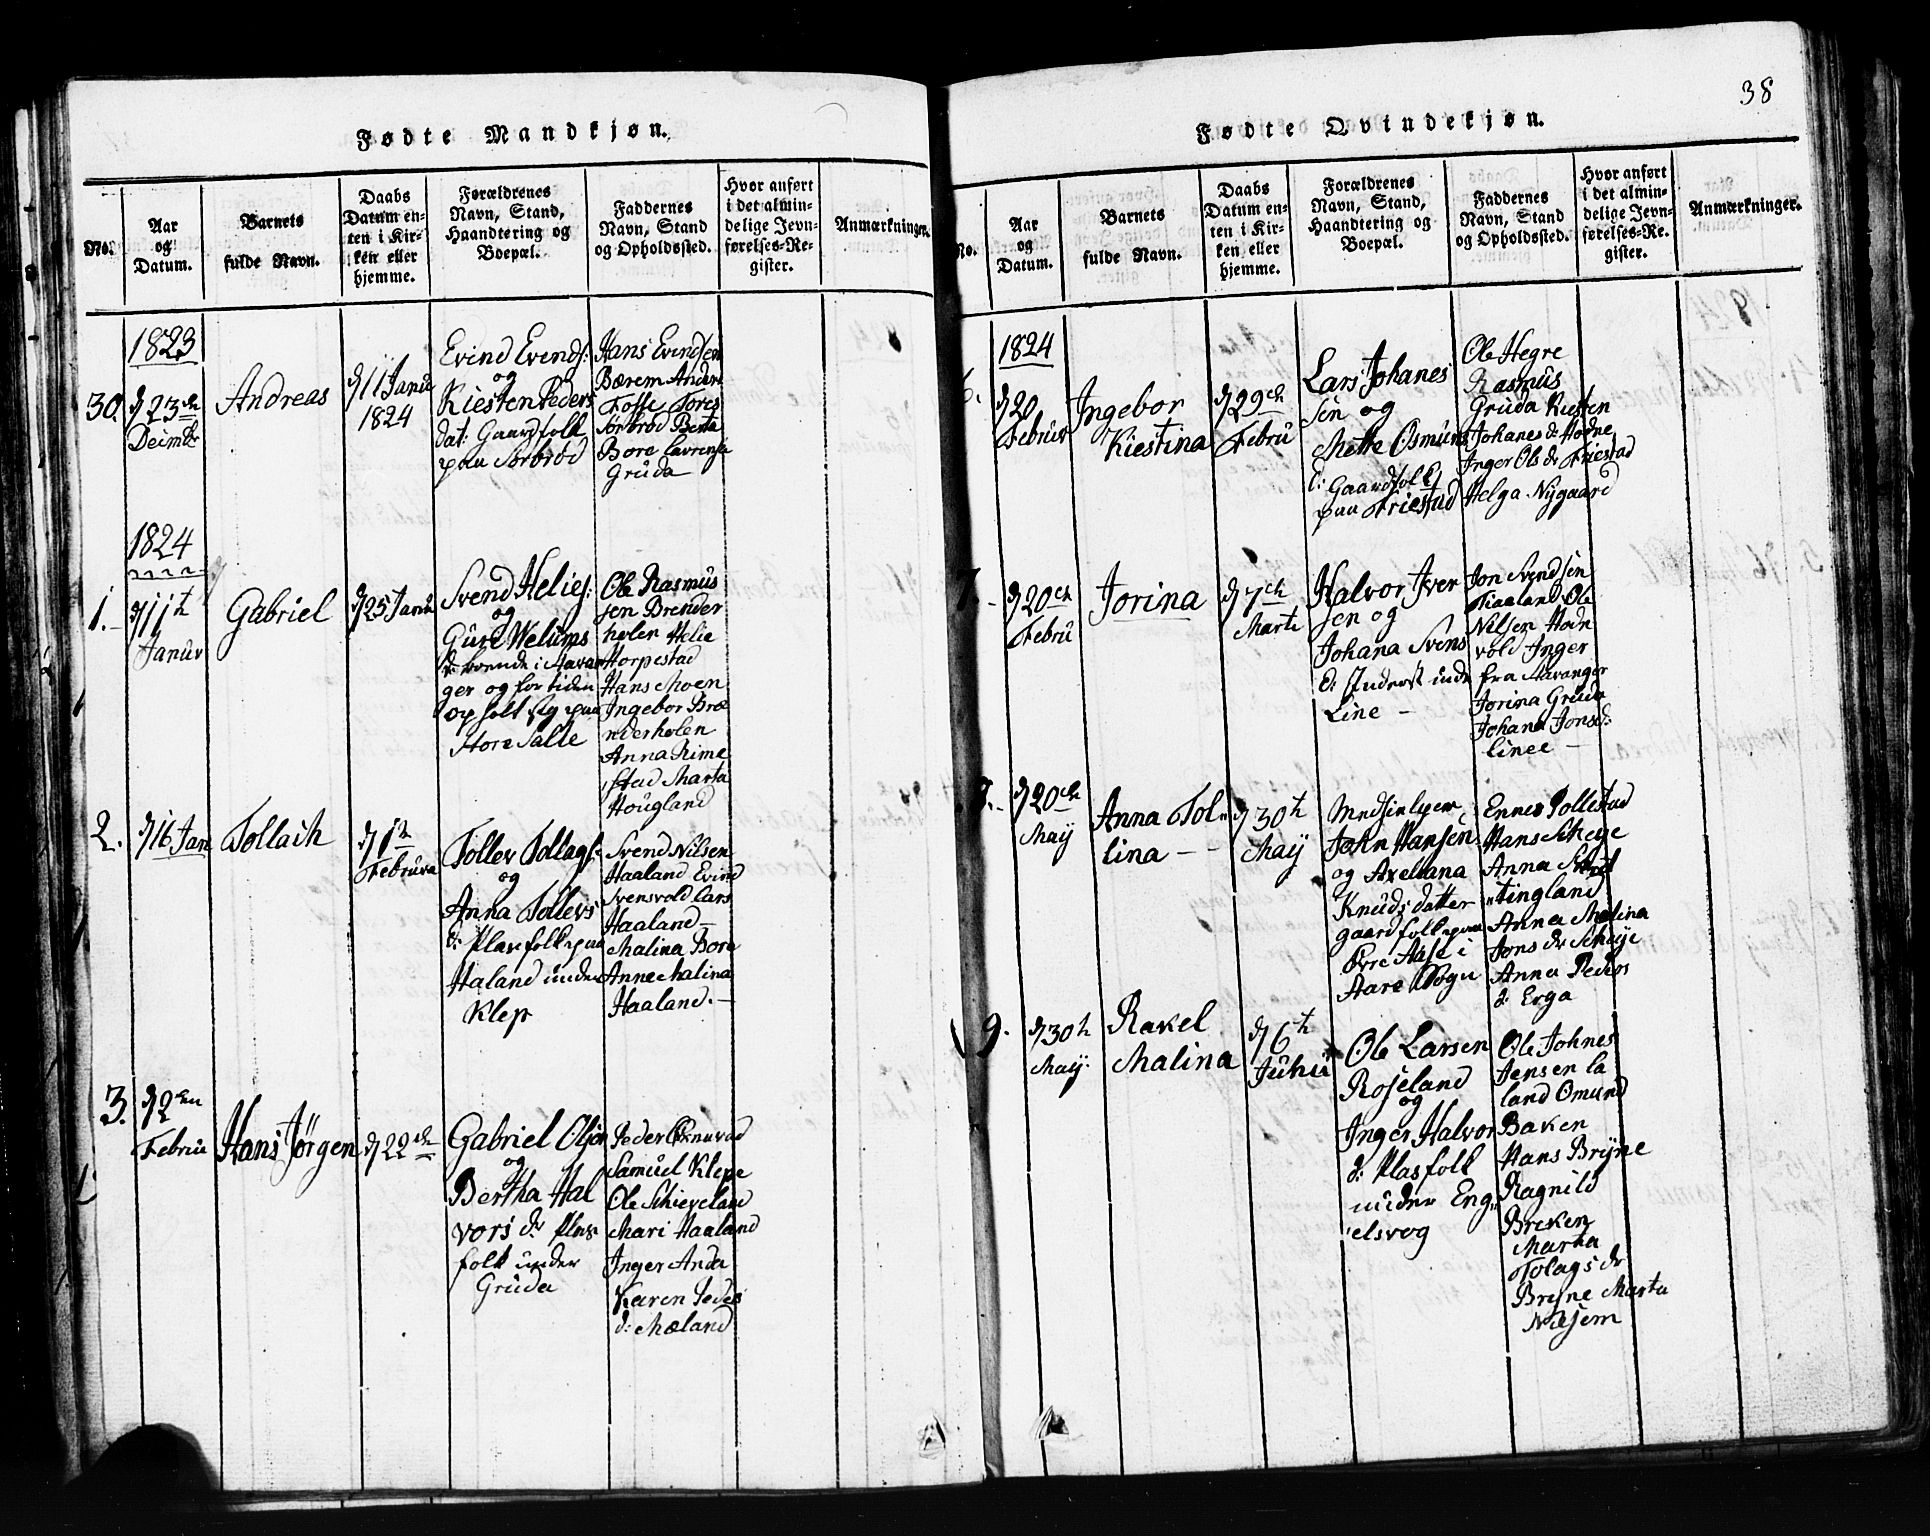 Fødte Mandkjøn.
No.
Aar
og
Datum.
Barnets
fulde Navn.
Daabs
Datum en-
ten i Kir-
ken eller
hjemme.
Forældrenes
Navn, Stand,
Haandtering og
Boepæl.
Faddernes
Navn, Stand
og Opholdssted.
Hvor anført
i det almin-
delige Jevn-
førelses-Re-
gister.
Anmærkninger.
1823
30.
d 23de
Decmbr
Andreas
d 11 Janu
1824
Evind Evends:
og
Kiesten Peders
dat: Gaardfolk
paa Sørbrød
Hans Evendsen
Bærem Anders
Fosse Tores
Sørbrød Berta
Bore Lavrense
Gruda
1824
1.
d 11t
Januv
Gabriel
d 25 Janu
Svend Helies:
og
Guro Welums
d: boende i Stavan
ger og for tiden
opholt sig paa
Store Salte
Ole Rasmus
sen Brender
holen Helie
Horpestad
Hans Moen
Ingebor Bræ
nderholen
Anna Rime
stad Marta
Hougland
2.
d 16 Jan
Tollach
d 1t
Februva
Tollev Tollags:
og
Anna Tollevs
d: Plasfolk paa
Haland under
Klep
Svend Nilsen
Haaland Evind
Svensvold Lars
Haaland —
Malina Bore
Anne Malina
Haaland. —
3.
d 2den
Februv
Hans Jørgen
d 22de
Gabriel Olsen
og
Bertha Hal
vors dr Plas
folk under
Gruda
Peder
Samuel Klepe
Ole Schieveland
Mari Haaland
Inger Anda
Karen Peders
d: Mæland
38
Fødte Qvindekjøn.
No.
Aar
og
Datum.
Barnets
fulde Navn.
Daabs
Datum en-
ten i Kir-
ken eller
hjemme.
Forældrenes
Navn, Stand,
Haandtering og
Boepæl.
Faddernes
Navn, Stand
og Opholdssted.
Hvor anført
i det almin-
delige Jevn-
førelses-Re-
gister.
Anmærkninger.
1824
6.
d 20
Februv
Ingebor
Kiestina
d 29de
Febru
Lars Johanes
sen og
Mette Osmuns
d: Gaardfolk
paa Friestad
Ole Hegre
Rasmus
Gruda Kiesten
Johanes d: Hodne
Inger Ols dr Friestad
Helga Nygaard
7.
d 20de
Febru
Jorina
d 7de
Marti
Halvor Iver
sen og
Johana Svens
d: Inderst inde
Line —
Jon Svendsen
Tiaaland Ole
Nilsen Hodn
vold Inger
fra Stavanger
Jorina Gruda
Johana Jonsd:
Linee —
8.
d 20de
May
Anna Tol
lina —
d 30t
May
John Hansen
og Axeliana
Knuds datter
gaardfolk paa
Øvre Aase i
Aare Sogn
Ennes Pollestad
Hans Scheye
Anna
Tingland
Anna Malina
Jons dr Scheye
Anna Peders
d: Erga
9.
d 30t
May.
Rakel
Malina
d 6t
Juhu
Ole Larsen
Roseland
og
Inger Halvor
d: Plasfolk
under Eng
elsvog
Ole Johnes
Jensen La
land Omund
Baken
Hans Bryne
Ragnild
Breken
Marta
Tolags dr
Bryne Marta